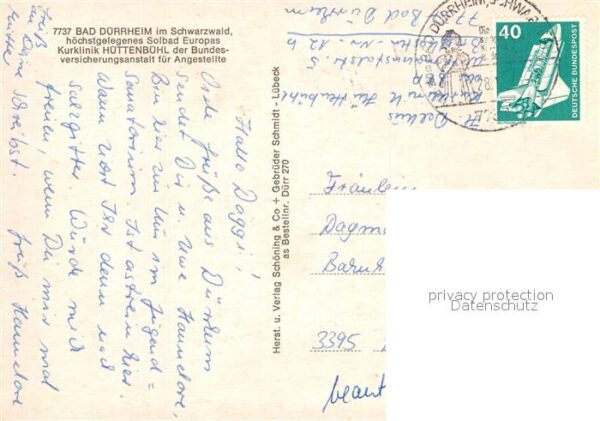 7737 BAD DÜRRHEIM im Schwarzwald,
höchstgelegenes Solbad Europas
Kurklinik HÜTTENBÜHL der Bundes-
versicherungsanstalt für Angestellte
Hallo Daggi!
Viele Grüße aus Dürrheim
sendet Dir u. Uwe Hannelore,
Bin hier zur Kur im Jugend=
sanatorium. Ist astrein hier.
Wann zieht Ihr denn nach
Salzgitter. Würde mich
freuen, wenn Du mir mal
schreibst. Gruß Hannelore
Gruß
an Deine
Mutter
Herst. u. Verlag Schöning & Co + Gebrüder Schmidt - Lübeck
as Bestellnr. Dürr 270
Bad Dürrheim
DÜRRHEIM, SCHWARZW
40
DEUTSCHE BUNDESPOST
Fräulein
Dagm
3395
privacy protection
Datenschutz